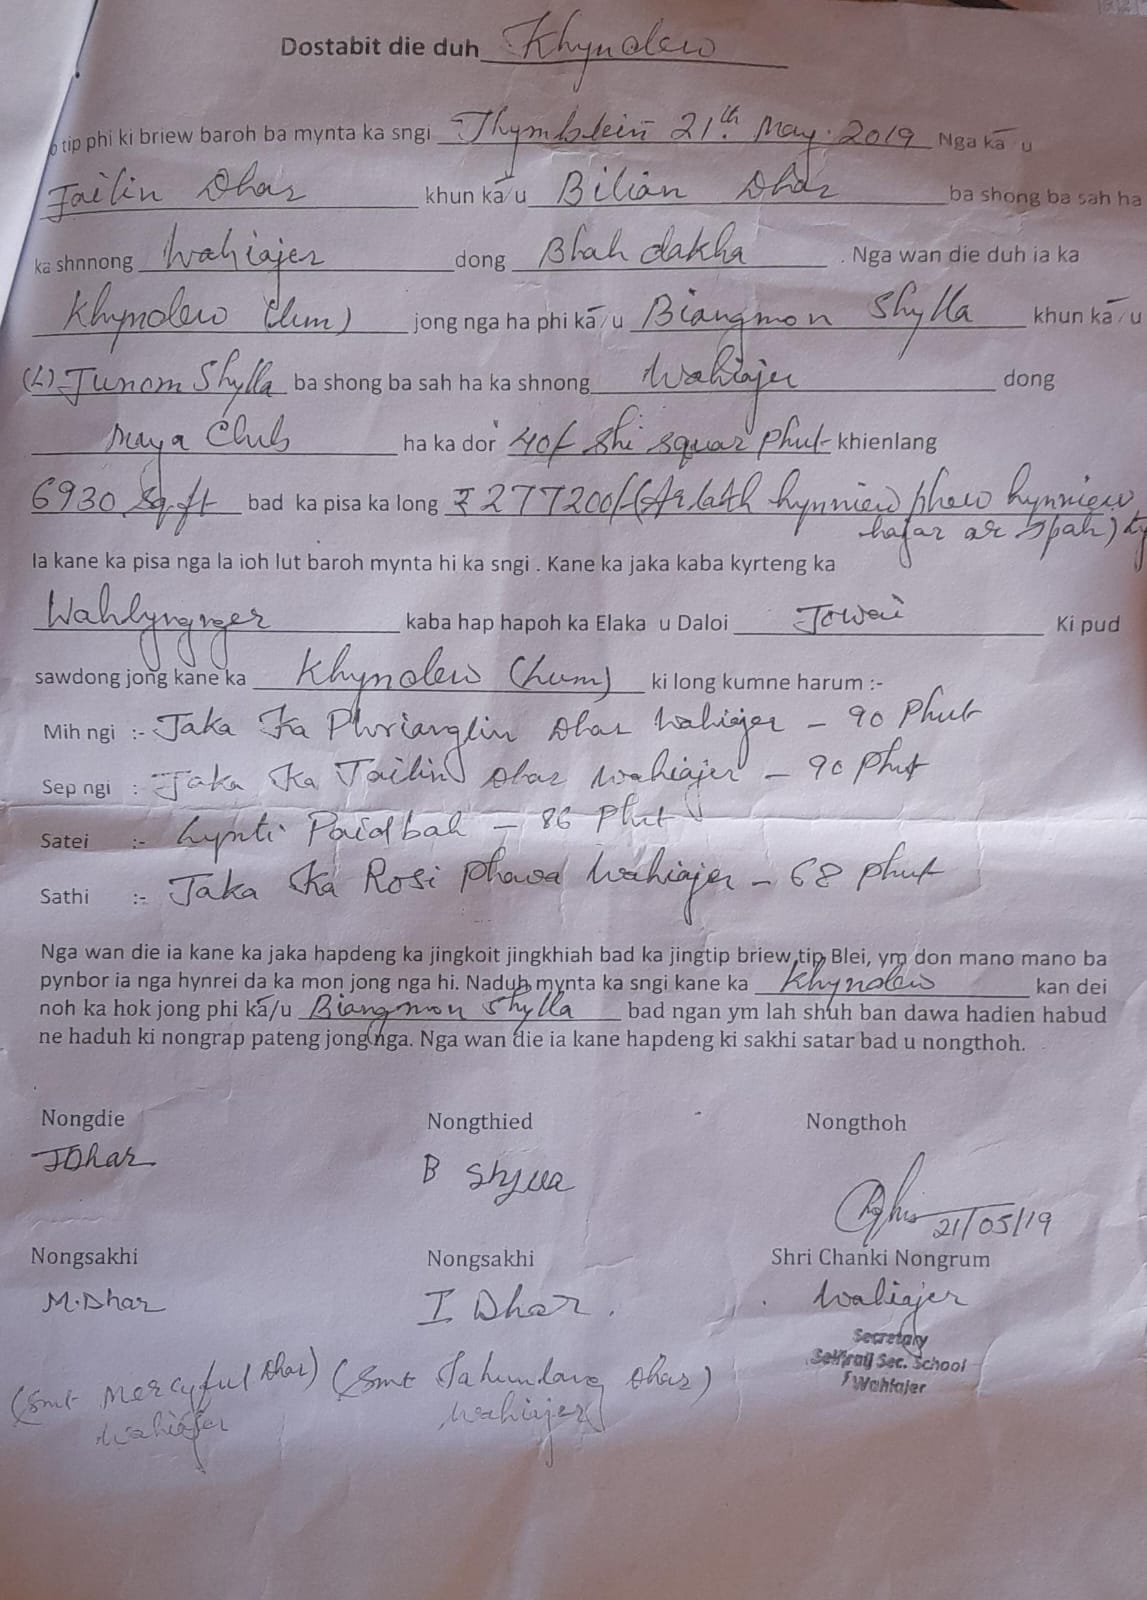 Dostabit die duh Khynolew
tip phi ki briew baroh ba mynta ka sngi Thymblein 21th May 2019 Nga kā/u
Jailin Dhar khun kā/u Bilian Dhar ba shong ba sah ha
ka shnnong Wahiajer dong Bhah dakha . Nga wan die duh ia ka
Khynolew (Lum) jong nga ha phi kā/u Biangmon Shylla khun kā/u
(L) Junom Shylla ba shong ba sah ha ka shnong Wahiajer dong
Maya Club ha ka dor 40/- shi squar phut khienlang
6930 Sq.ft bad ka pisa ka long ₹ 277200/- (Ar lakh hynniew phew hynniew
hajar ar spah)
Ia kane ka pisa nga la ioh lut baroh mynta hi ka sngi . Kane ka jaka kaba kyrteng ka
Wahlyngnger kaba hap hapoh ka Elaka u Daloi Jowai Ki pud
sawdong jong kane ka Khynolew (Lum) ki long kumne harum :-
Mih ngi :- Jaka Ka Phrianglin Dhar Wahiajer - 90 Phut
Sep ngi : Jaka Ka Jailin Dhar Wahiajer - 90 Phut
Satei :- Lynti Paidbah - 86 Phut
Sathi :- Jaka Ka Rosi Phawa Wahiajer - 68 Phut
Nga wan die ia kane ka jaka hapdeng ka jingkoit jingkhiah bad ka jingtip briew tip Blei, ym don mano mano ba
pynbor ia nga hynrei da ka mon jong nga hi. Naduh mynta ka sngi kane ka Khynolew kan dei
noh ka hok jong phi kā/u Biangmon Shylla bad ngan ym lah shuh ban dawa hadien habud
ne haduh ki nongrap pateng jong nga. Nga wan die ia kane hapdeng ki sakhi satar bad u nongthoh.
Nongdie Nongthied Nongthoh
JDhar B Shylla
21/05/19
Nongsakhi Nongsakhi Shri Chanki Nongrum
M.Dhar I Dhar . Wahiajer
Secretary
Sec. School
Wahiajer
(Smt Mercyful Dhar) (Smt Dhar)
Wahiajer Wahiajer